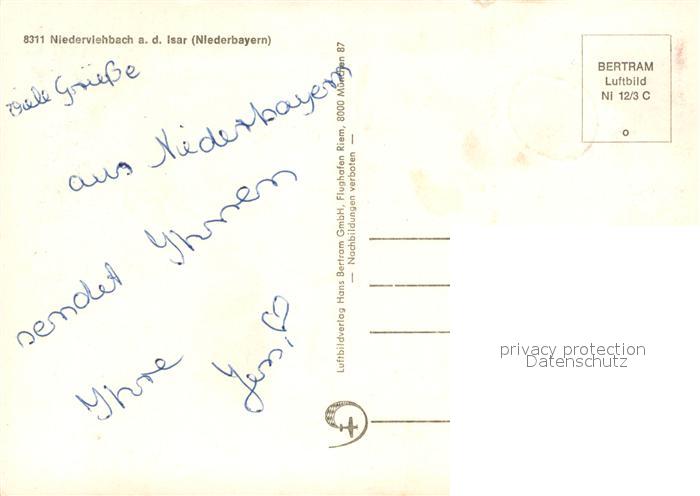 8311 Niederviehbach a. d. Isar (Niederbayern)
viele Grüße
aus Niederbayern
sendet Ihnen
Ihre
Luftbildverlag Hans Bertram GmbH, Flughafen Riem, 8000 München 87
— Nachbildungen verboten —
BERTRAM
Luftbild
Ni 12/3 C
privacy protection
Datenschutz